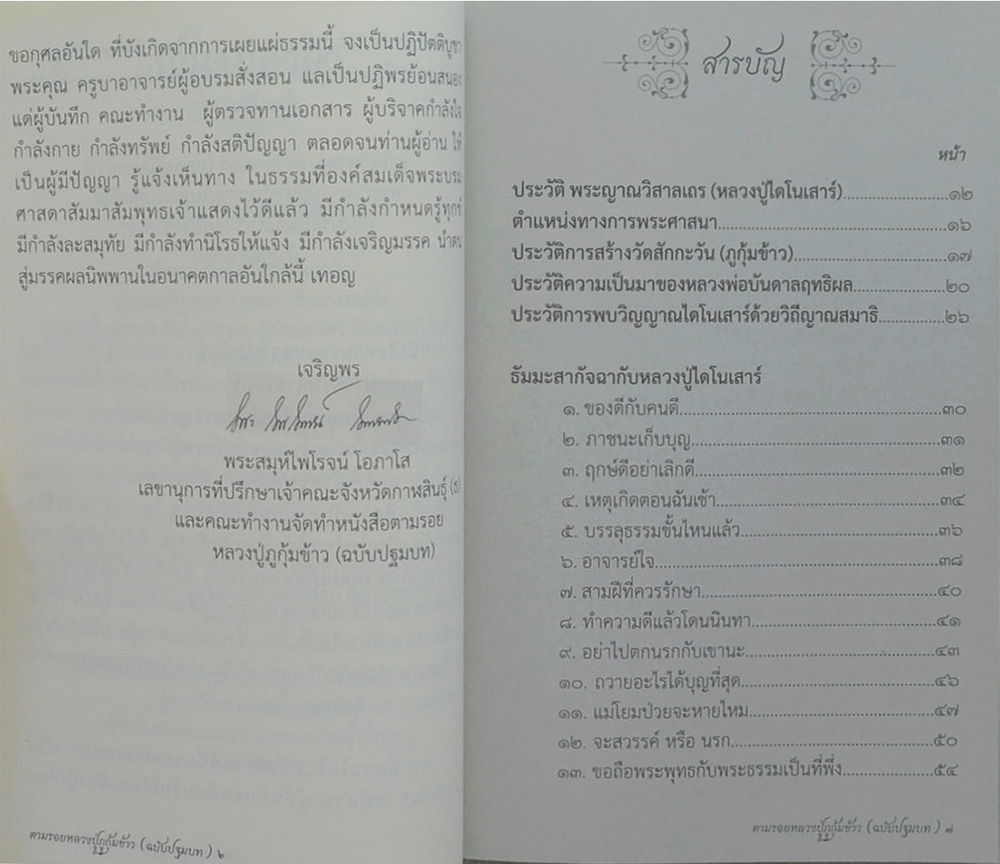 ขอกุศลอันใด ที่บังเกิดจากการเผยแผ่ธรรมนี้ จงเป็นปฏิปัตติบูชา
พระคุณ ครูบาอาจารย์ผู้อบรมสั่งสอน แลเป็นปฏิพรย้อนสนอง
แด่ผู้บันทึก คณะทำงาน ผู้ตรวจทานเอกสาร ผู้บริจาคกำลังใจ
กำลังกาย กำลังทรัพย์ กำลังสติปัญญา ตลอดจนท่านผู้อ่าน ให้
เป็นผู้มีปัญญา รู้แจ้งเห็นทาง ในธรรมที่องค์สมเด็จพระบรม
ศาสดาสัมมาสัมพุทธเจ้าแสดงไว้ดีแล้ว มีกำลังกำหนดรู้ทุกข์
มีกำลังละสมุทัย มีกำลังทำนิโรธให้แจ้ง มีกำลังเจริญมรรค นำตน
สู่มรรคผลนิพพานในอนาคตกาลอันใกล้นี้ เทอญ
เจริญพร
พระสมุห์ไพโรจน์ โอภาโส
เลขานุการที่ปรึกษาเจ้าคณะจังหวัดกาฬสินธุ์ (ธ)
และคณะทำงานจัดทำหนังสือตามรอย
หลวงปู่ภูกุ้มข้าว (ฉบับปฐมบท)
ตามรอยหลวงปู่ภูกุ้มข้าว (ฉบับปฐมบท ) ๖
สารบัญ
หน้า
ประวัติ พระญาณวิสาลเถร (หลวงปู่ไดโนเสาร์)......................๑๒
ตำแหน่งทางการพระศาสนา.............................................๑๖
ประวัติการสร้างวัดสักกะวัน (ภูกุ้มข้าว)..............................๑๗
ประวัติความเป็นมาของหลวงพ่อบันดาลฤทธิผล..................๒๐
ประวัติการพบวิญญาณไดโนเสาร์ด้วยวิถีญาณสมาธิ.............๒๖
ธัมมะสากัจฉากับหลวงปู่ไดโนเสาร์
๑. ของดีกับคนดี....................................................๓๐
๒. ภาชนะเก็บบุญ..................................................๓๑
๓. ฤกษ์ดีอย่าเลิกดี.................................................๓๒
๔. เหตุเกิดตอนฉันเช้า.............................................๓๔
๕. บรรลุธรรมขั้นไหนแล้ว........................................๓๖
๖. อาจารย์ใจ........................................................๓๘
๗. สามผีที่ควรรักษา...............................................๔๐
๘. ทำความดีแล้วโดนนินทา.....................................๔๑
๙. อย่าไปตกนรกกับเขานะ......................................๔๓
๑๐. ถวายอะไรได้บุญที่สุด.......................................๔๖
๑๑. แม่โยมป่วยจะหายไหม.....................................๔๗
๑๒. จะสวรรค์ หรือ นรก.........................................๕๐
๑๓. ขอถือพระพุทธกับพระธรรมเป็นที่พึ่ง..................๕๔
ตามรอยหลวงปู่ภูกุ้มข้าว (ฉบับปฐมบท ) ๘